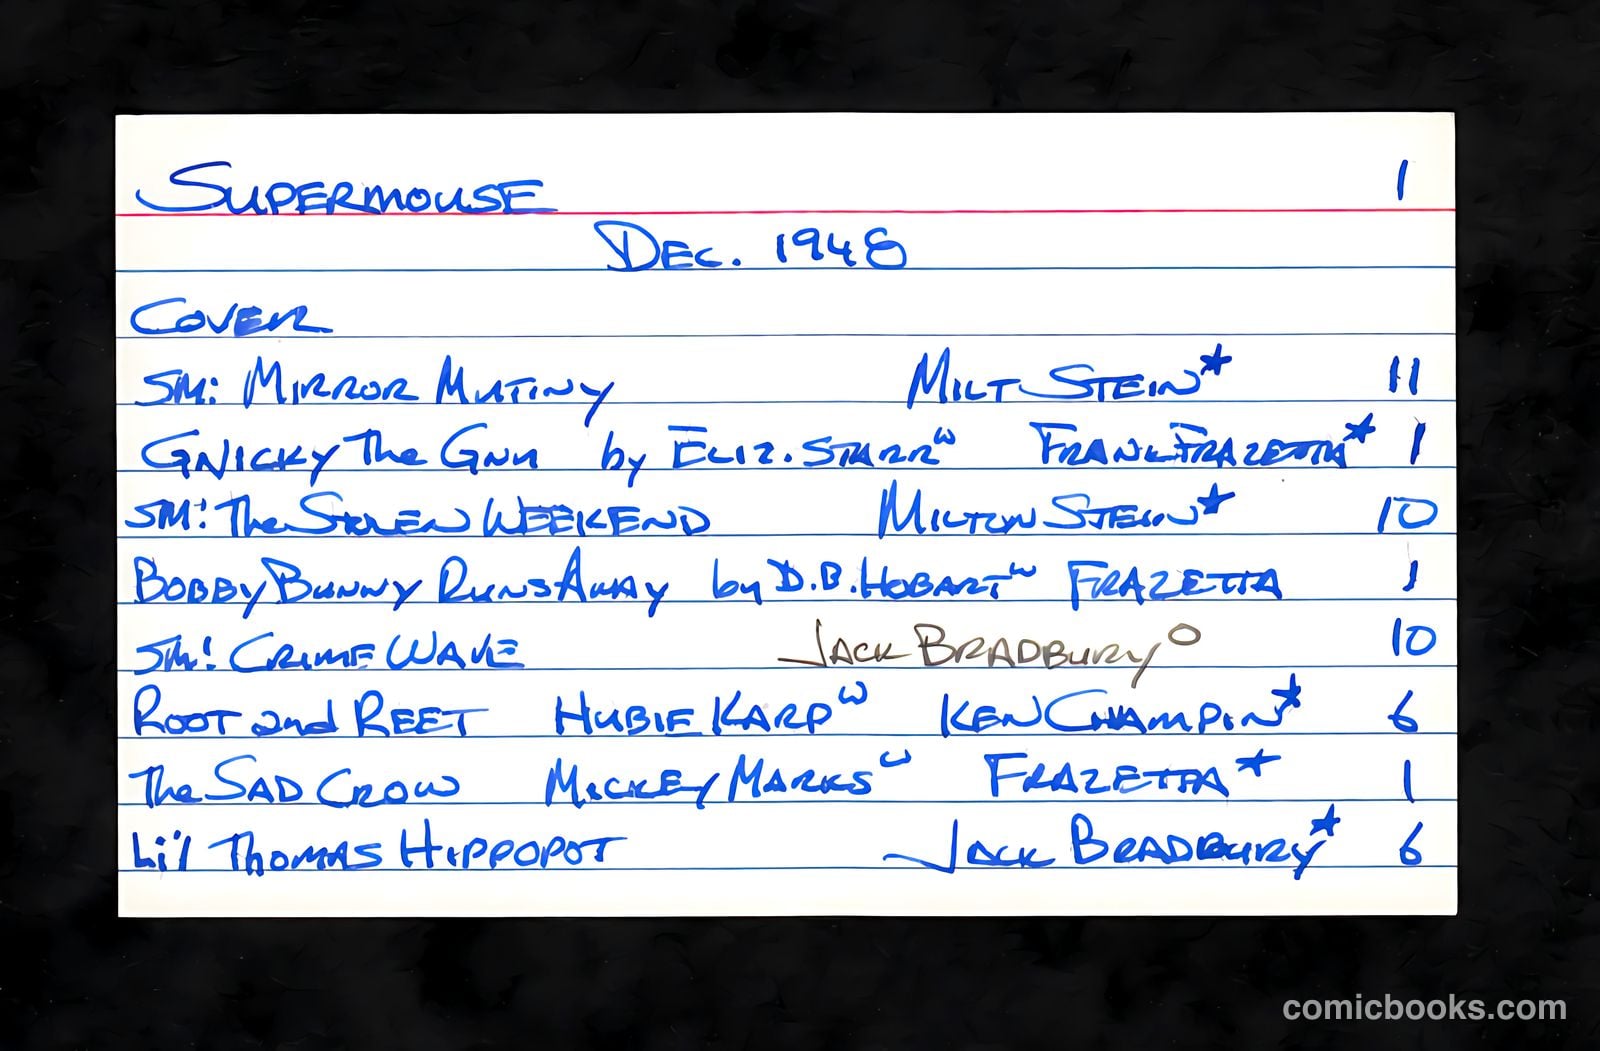 SUPERMOUSE 1
DEC. 1948
COVER
SM: MIRROR MUTINY MILT STEIN* 11
GNICKY The GNU by ELIZ. STARR w FRANK FRAZETTA* 1
SM: The STOLEN WEEKEND MILTON STEIN* 10
BOBBY BUNNY RUNS AWAY by D.B. HOBART w FRAZETTA 1
SM: CRIME WAVE JACK BRADBURY o 10
ROOT and REET HUBIE KARP w KEN CHAMPIN* 6
The SAD CROW MICKEY MARKS w FRAZETTA* 1
Li'l THOMAS HIPPOPOT JACK BRADBURY* 6
comicbooks.com